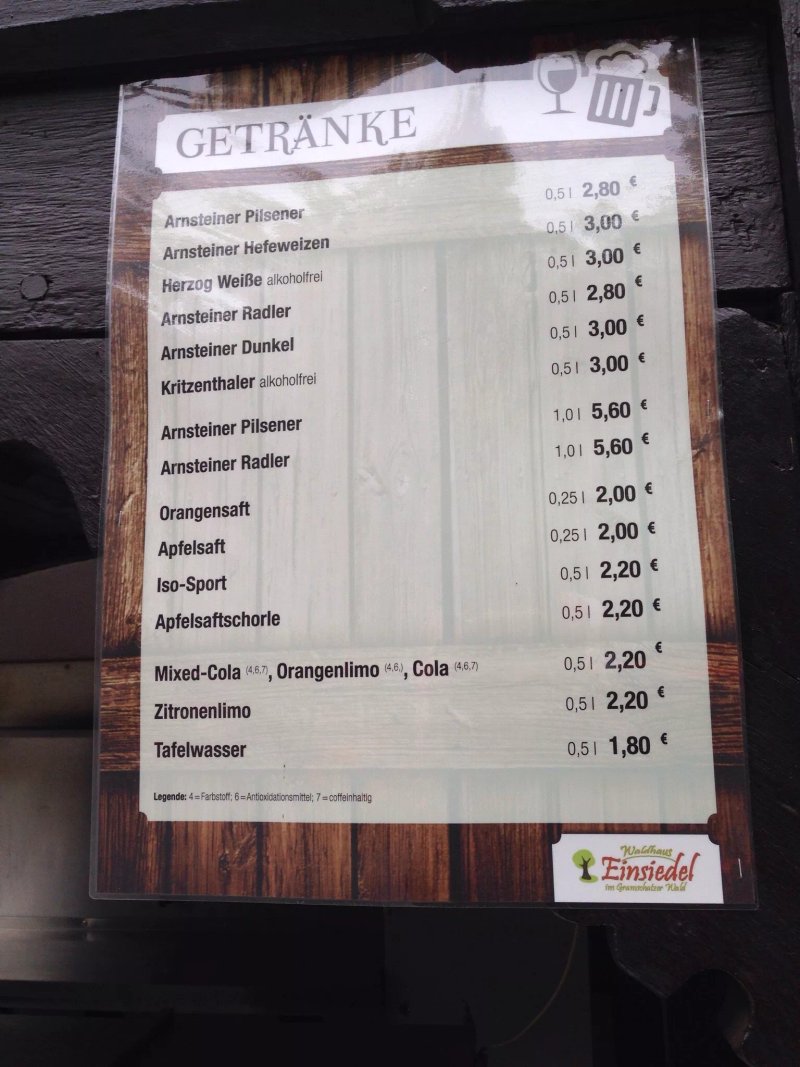 GETRÄNKE
Arnsteiner Pilsener 0,5 l 2,80 €
Arnsteiner Hefeweizen 0,5 l 3,00 €
Herzog Weiße alkoholfrei 0,5 l 3,00 €
Arnsteiner Radler 0,5 l 2,80 €
Arnsteiner Dunkel 0,5 l 3,00 €
Kritzenthaler alkoholfrei 0,5 l 3,00 €
Arnsteiner Pilsener 1,0 l 5,60 €
Arnsteiner Radler 1,0 l 5,60 €
Orangensaft 0,25 l 2,00 €
Apfelsaft 0,25 l 2,00 €
Iso-Sport 0,5 l 2,20 €
Apfelsaftschorle 0,5 l 2,20 €
Mixed-Cola (4,6,7), Orangenlimo (4,6,), Cola (4,6,7) 0,5 l 2,20 €
Zitronenlimo 0,5 l 2,20 €
Tafelwasser 0,5 l 1,80 €
Legende: 4 = Farbstoff; 6 = Antioxidationsmittel; 7 = coffeinhaltig
Waldhaus
Einsiedel
im Gramschatzer Wald